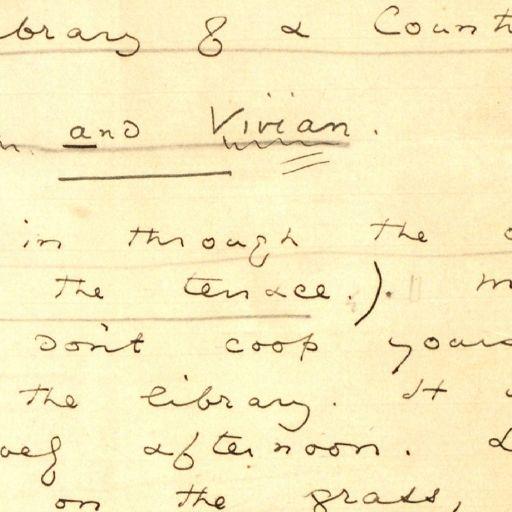 brary of a Count
and Vivian.
in through the
the terrace.). m
Don't coop yours
the library. It
afternoon. L
on the grass,